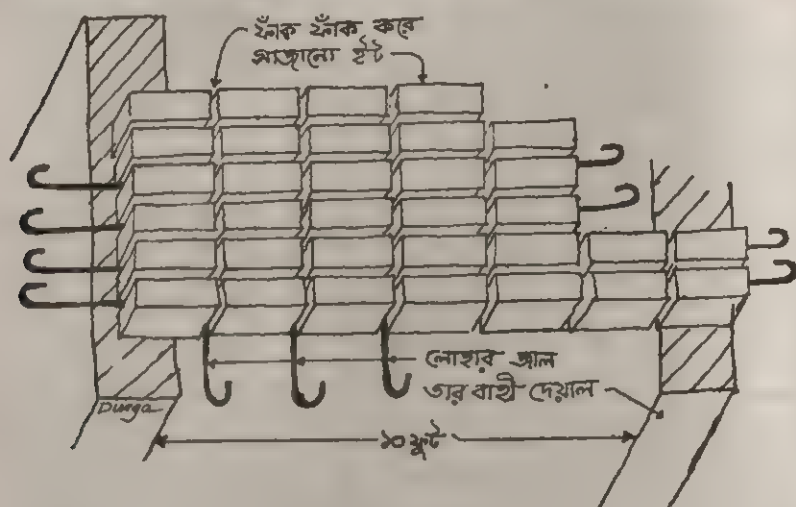 ফাঁক ফাঁক করে
সাজানো ইঁট
লোহার জাল
ভার বাহী দেয়াল
Durga
১০ ফুট